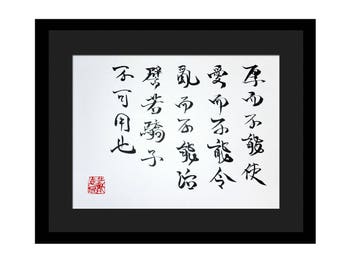 厚而不能使
愛而不能令
亂而不能治
譬若驕子
不可用也